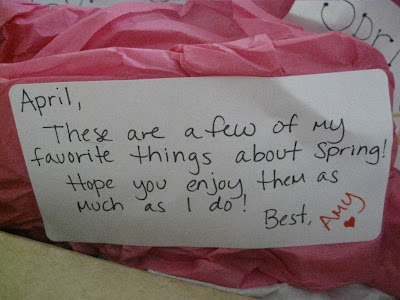 April,
These are a few of my
favorite things about Spring!
Hope you enjoy them as
much as I do!
Best, AMY